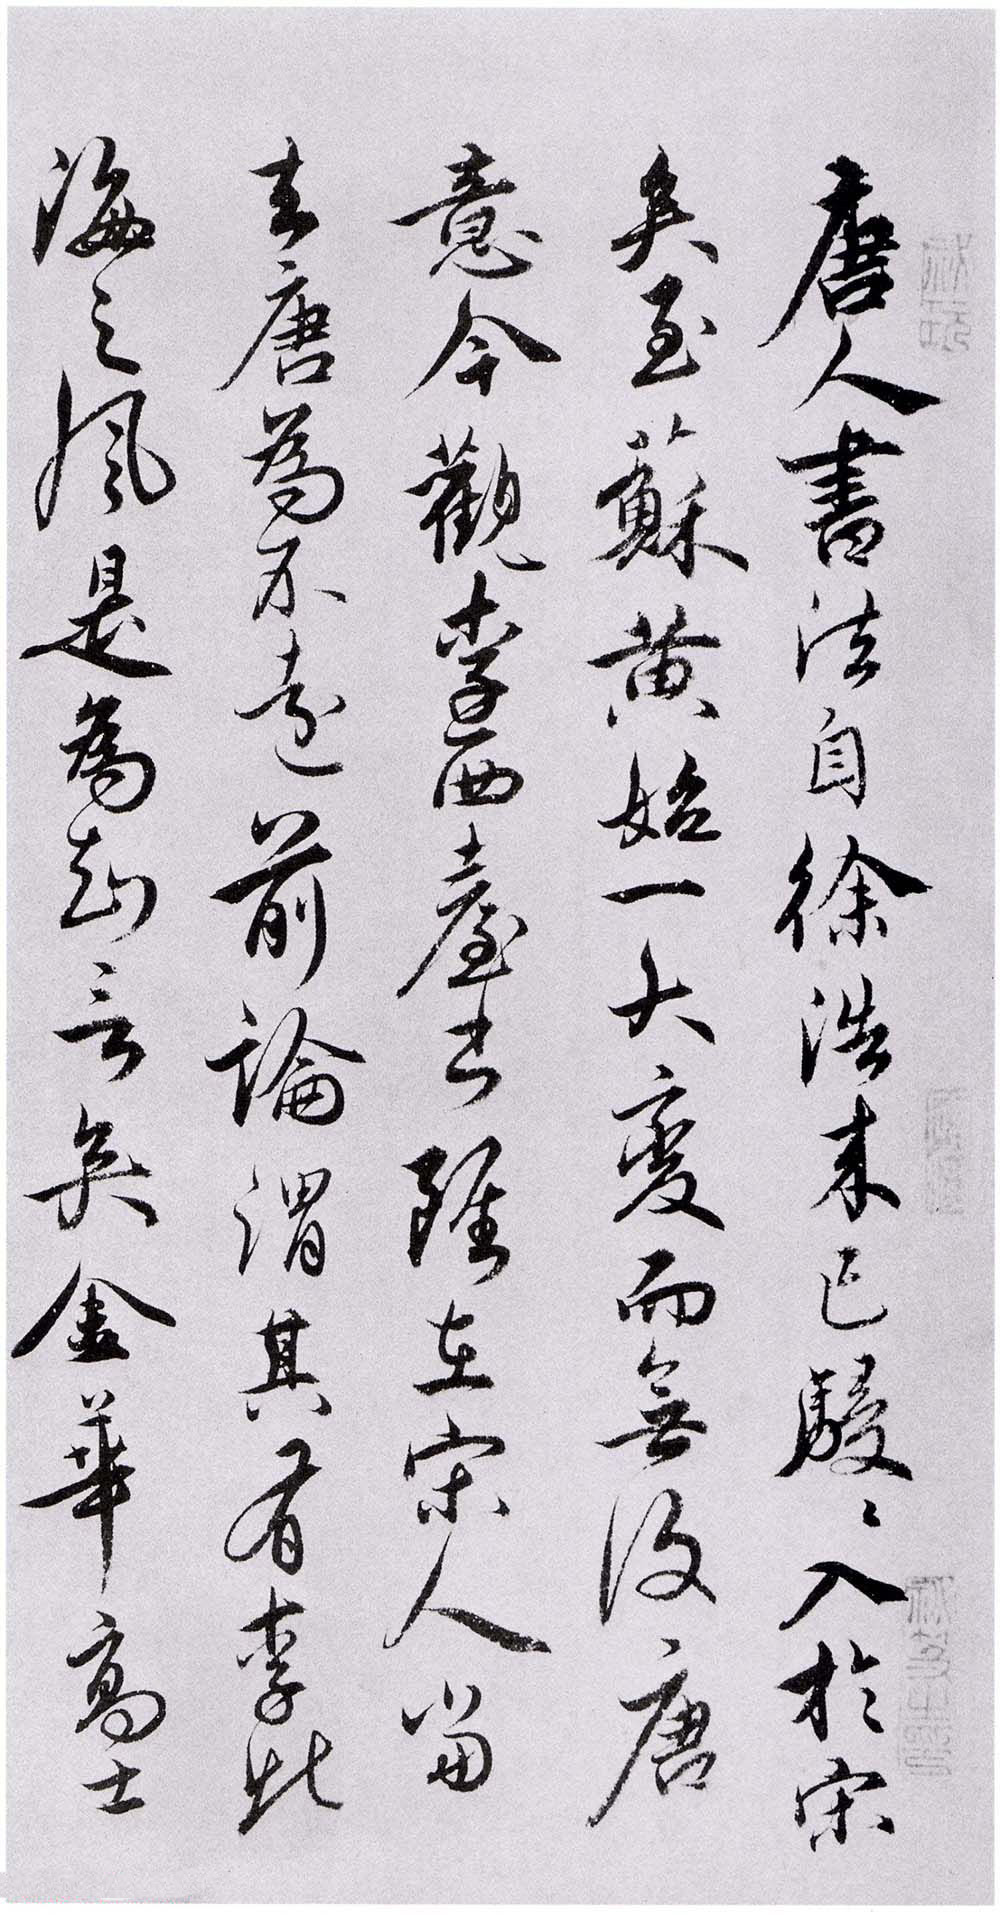 唐人書法自徐浩来已駸〻入於宋
矣至蘇黄始一大變而無復唐
意今觀李西臺書雖在宋人當
去唐為不遠前論謂其有李北
海之風是為知言矣金華高士